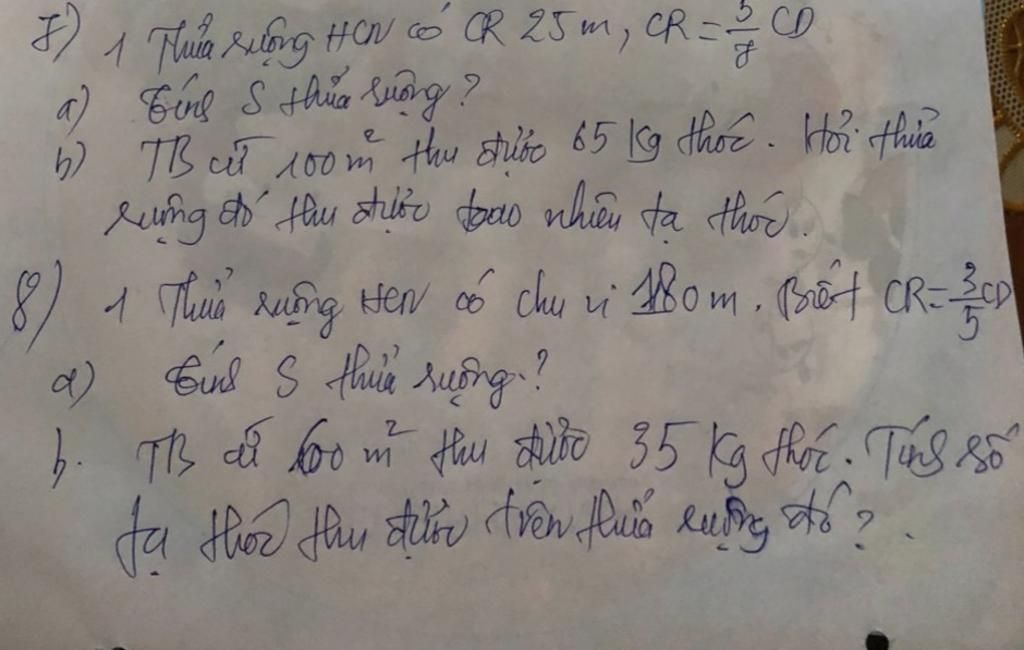 7) 1 Thửa ruộng HCN có CR 25 m, CR = 5/7 CD
a) tính S thửa ruộng?
b) TB cứ 100 m² thu được 65 Kg thóc. Hỏi thửa
ruộng đó thu được bao nhiêu tạ thóc.
8) 1 Thửa ruộng HCN có chu vi 180 m. Biết CR = 3/5 CD
a) tính S thửa ruộng?
b. TB cứ 100 m² thu được 35 Kg thóc. Tính số
tạ thóc thu được trên thửa ruộng đó?.